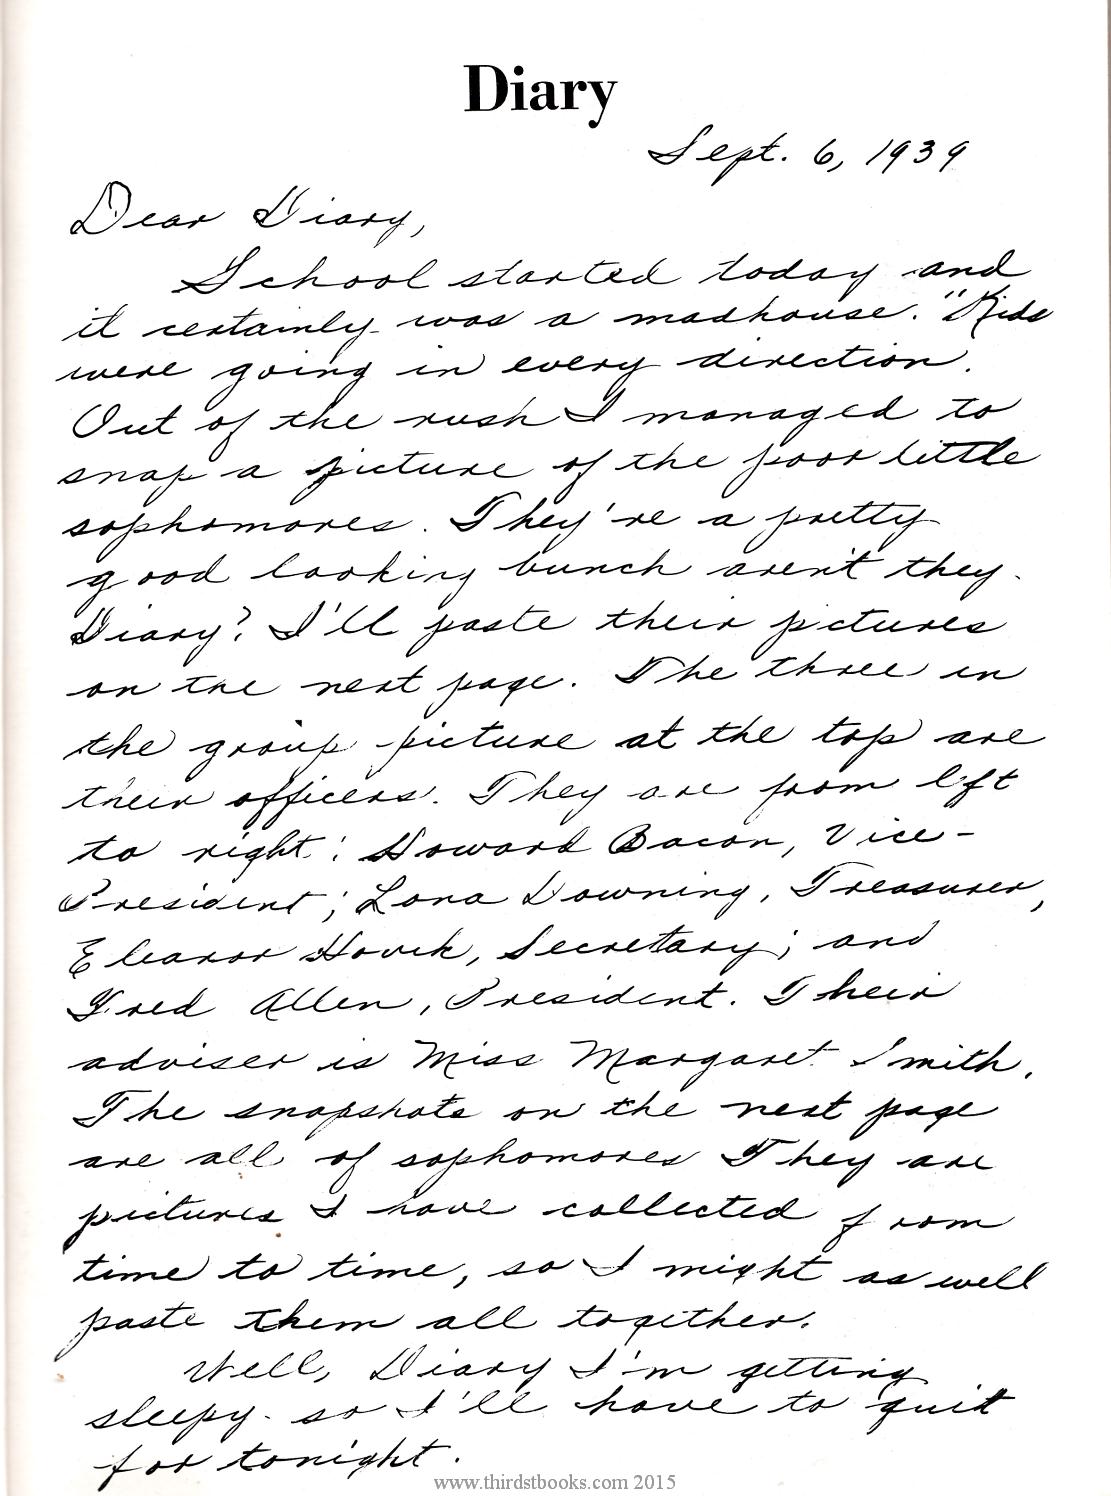 Diary
Sept. 6, 1939
Dear Diary,
School started today and
it certainly was a madhouse. "Kids
were going in every direction.
Out of the rush I managed to
snap a picture of the poor little
sophomores. They're a pretty
good looking bunch aren't they.
Diary? I'll paste their pictures
on the next page. The three in
the group picture at the top are
their officers. They are from left
to right: Howard Bacon, Vice-
President; Lona Downing, Treasurer,
Eleanor Hovik, Secretary; and
Fred Allen, President. Their
adviser is Miss Margaret Smith.
The snapshots on the next page
are all of sophomores They are
pictures I have collected from
time to time, so I might as well
paste them all together.
Well, Diary I'm getting
sleepy. so I'll have to quit
for tonight.
www.thirdstbooks.com 2015